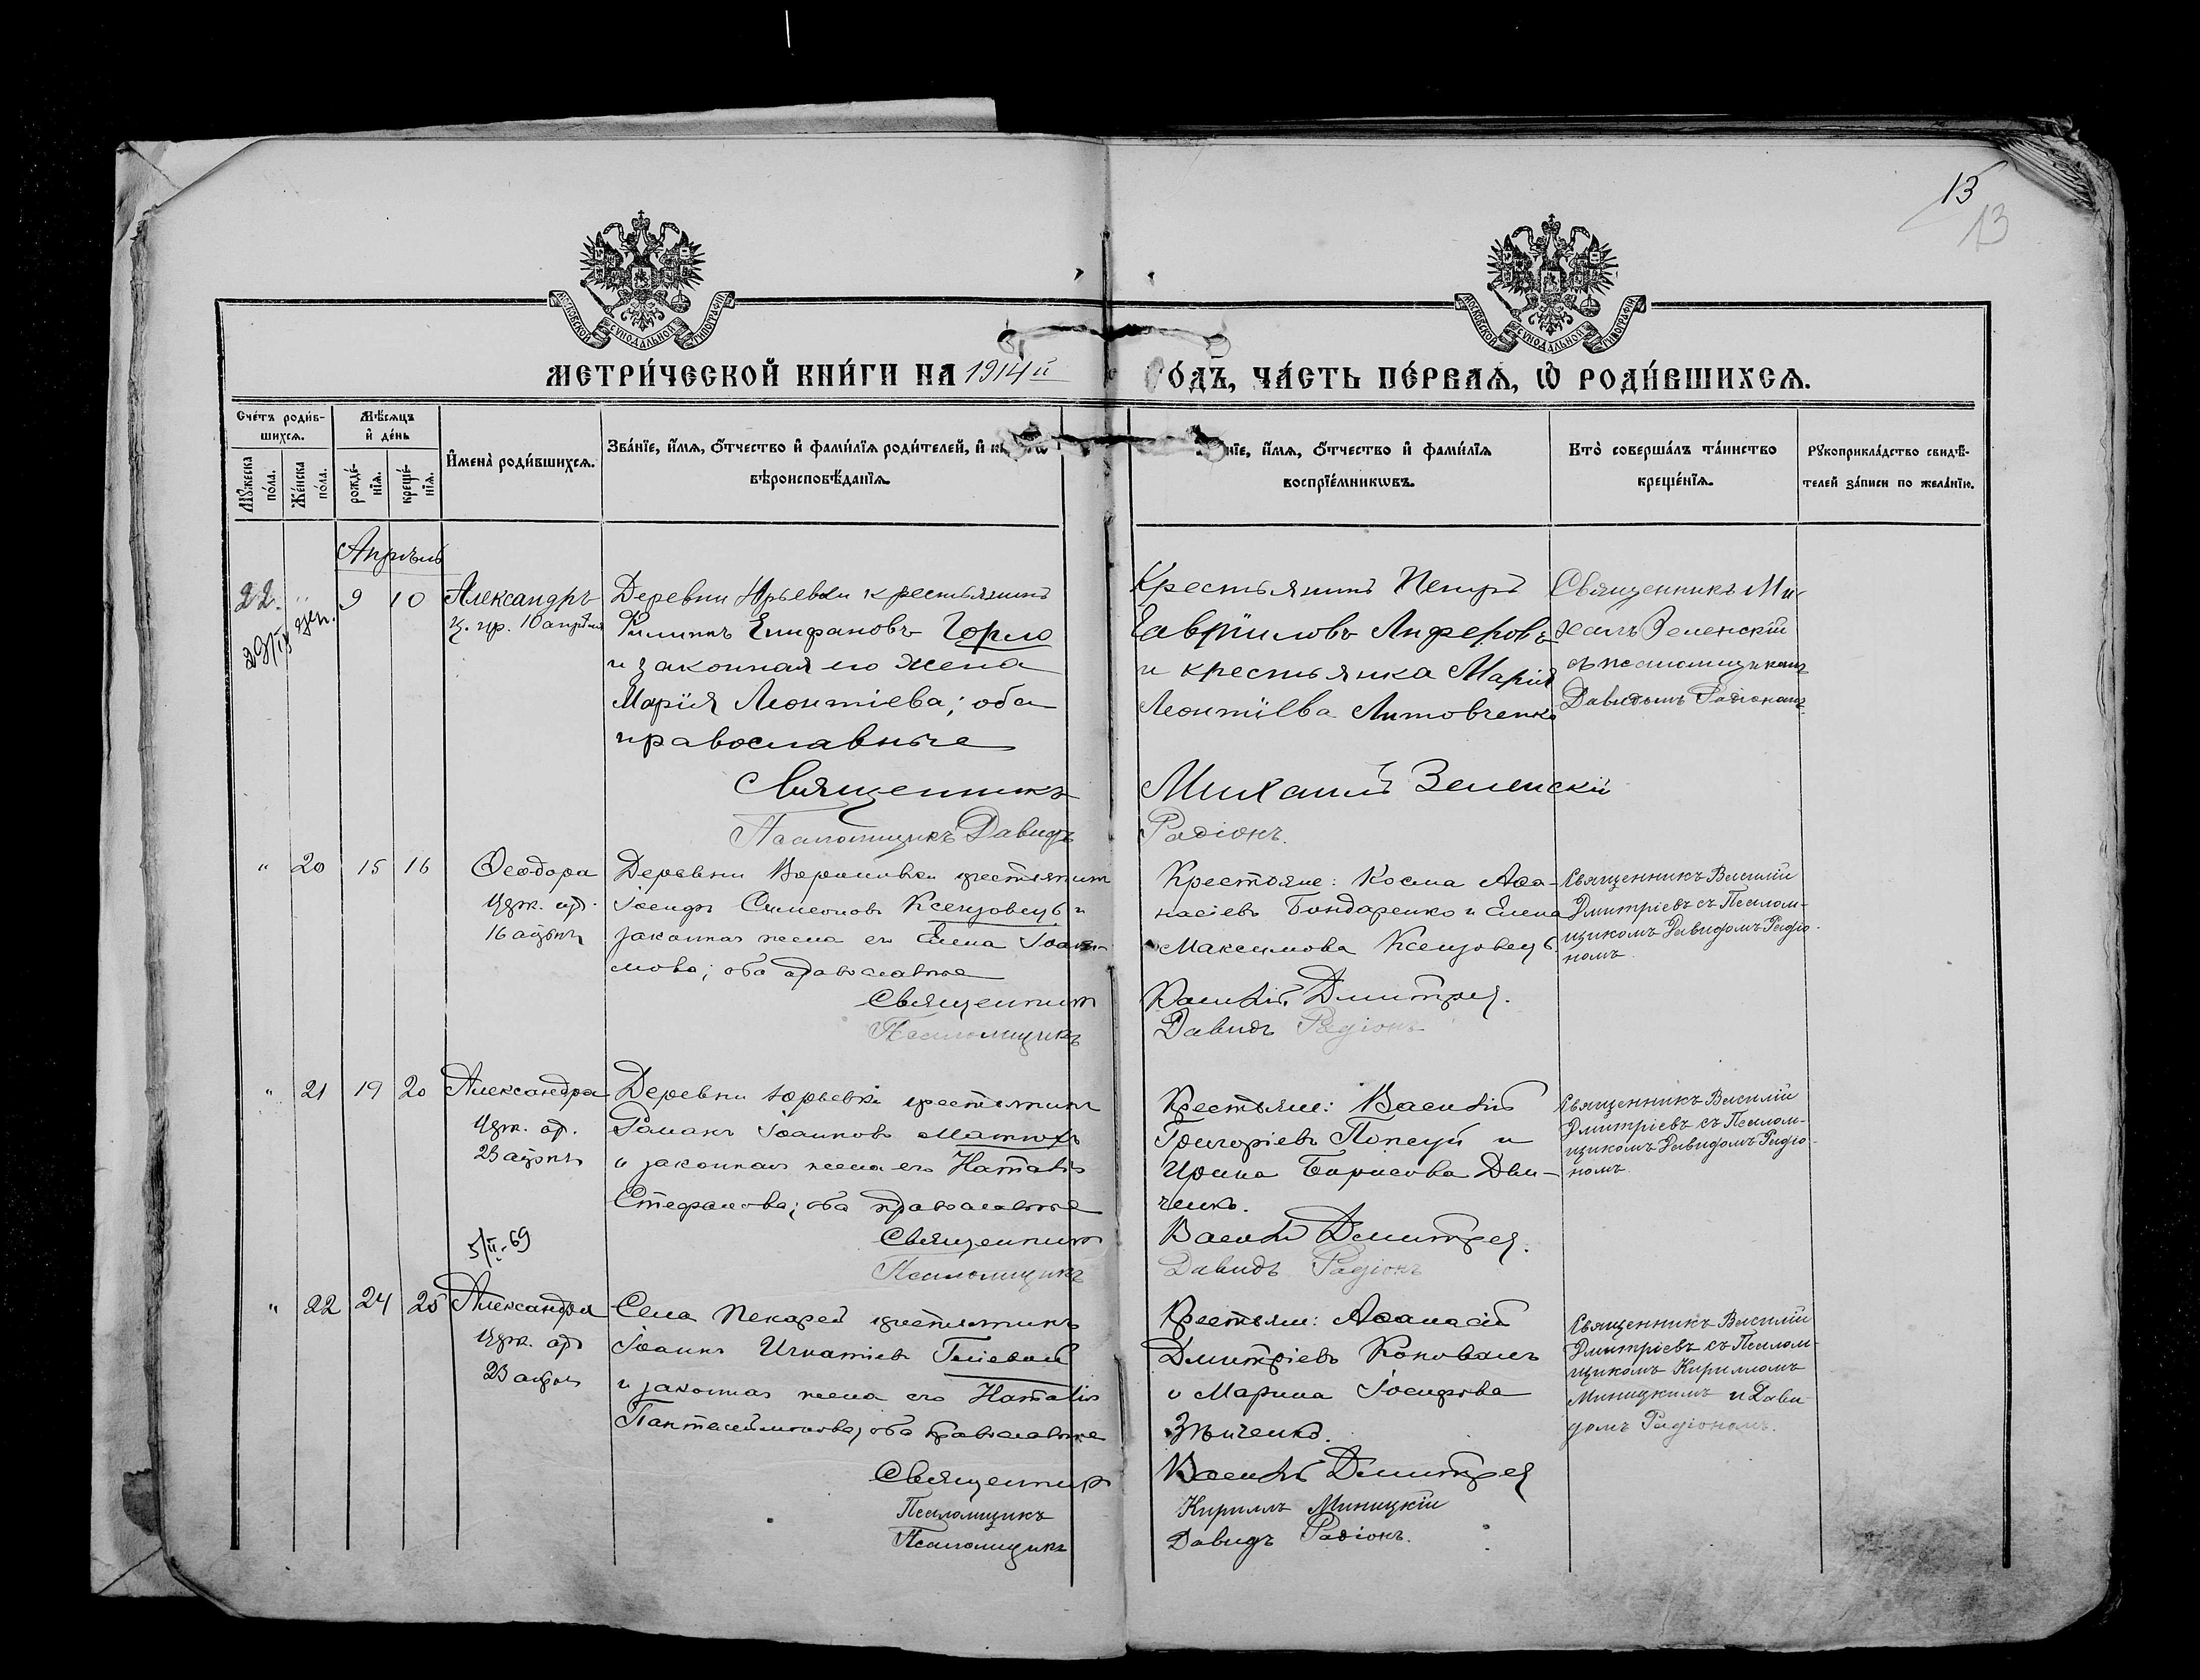 13
13
МОСКОВСКОЙ СУНОДАЛЬНОЙ ТИПОГРАФІИ
МОСКОВСКОЙ СУНОДАЛЬНОЙ ТИПОГРАФІИ
МЕТРИ́ЧЕСКОЙ КНИ́ГИ НА 1914й
ГО́ДЪ, ЧА́СТЬ ПЕ́РВАѦ, Ѡ РОДИ́ВШИХСѦ.
Сче́тъ роди́вшихсѧ.
Мѣ́сѧцъ и де́нь
Мꙋ́жеска по́ла.
Же́нска по́ла.
рожде́нїѧ.
креще́нїѧ.
Имена̀ роди́вшихсѧ.
Зва́нїе, и́мѧ, ѻ́тчество и фами́лїѧ роди́телей, и
вѣроисповѣ́данїѧ.
нїе, и́мѧ, ѻ́тчество и фами́лїѧ
воспрїе́мникѡвъ.
Кто̀ соверша́лъ та́инство
креще́нїѧ.
Рꙋкоприкла́дство свидѣ́-
телей за́писи по жела́нїю.
Апрѣль
22. " 9 10 Александръ
ц. пр. 10 апрѣля
Деревни Юрьевки крестьянинъ
Филиппъ Епифановъ Горло
и законная его жена
Марія Леонтіева; оба
православные
Священникъ
Псаломщикъ Давидъ
Крестьянинъ Петръ
Гавріиловъ Анферовъ
и крестьянка Марія
Леонтіева Литовченко
Михаилъ Зеленскій
Радіонъ.
Священникъ Ми-
хаилъ Зеленскій
съ псаломщикомъ
Давидомъ Радіономъ.
" 20 15 16 Ѳеодора
16
Деревни крестьянинъ
Іосифъ Симеоновъ Ксензовецъ и
законная жена его Елена
оба православные
Священникъ
Псаломщикъ
Крестьяне: Косма Аѳа-
насіевъ Бондаренко и Елена
Максимова Ксензовецъ.
Василій Дмитріев.
Давидъ Радіонъ
Священникъ Василій
Дмитріевъ съ Псалом-
щикомъ Давидомъ Радіо-
номъ.
" 21 19 20 Александра
Деревни Юрьевки крестьянинъ
Романъ Іоанновъ Матюхъ
и законная жена его Наталія
Стефанова; оба православные
Священникъ
Псаломщикъ
Крестьяне: Василій
Григоріевъ и
Ирина Борисова
Василій Дмитріев.
Давидъ Радіонъ
Священникъ Василій
Дмитріевъ съ Псалом-
щикомъ Давидомъ Радіо-
номъ.
5/II-69
" 22 24 25 Александра
Села Пекарей крестьянинъ
Іоаннъ Игнатіевъ
и законная жена его Наталія
Пантелеймонова; оба православные
Священникъ
Псаломщикъ
Псаломщикъ
Крестьяне: Аѳанасій
Дмитріевъ Коновалъ
и Марина Іосифова
Василій Дмитріев
Кириллъ Миницкій
Давидъ Радіонъ.
Священникъ Василій
Дмитріевъ съ Псалом-
щикомъ Кирилломъ
Миницкимъ и Дави-
домъ Радіономъ.